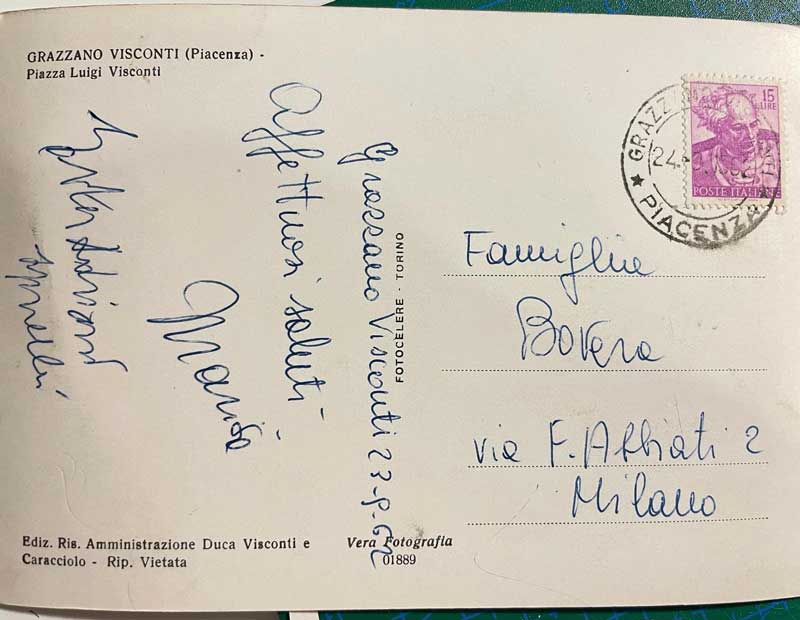 GRAZZANO VISCONTI (Piacenza) -
Piazza Luigi Visconti
15
LIRE
POSTE ITALIANE
GRAZZANO
24
PIACENZA
Grazzano Visconti 23-9-62
Affettuosi saluti
Marisa
FOTOCELERE - TORINO
Famiglia
Bovera
via F. Abbiati 2
Milano
Ediz. Ris. Amministrazione Duca Visconti e
Caracciolo - Rip. Vietata
Vera Fotografia
01889